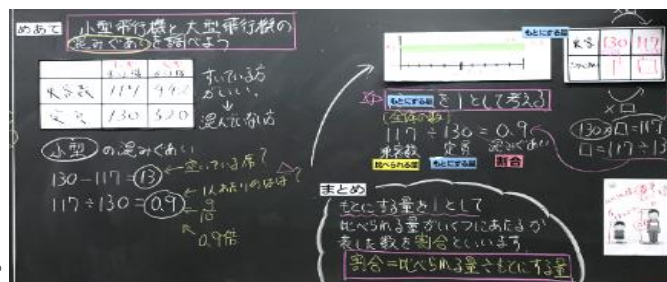 めあて
小型飛行機と大型飛行機の
混みぐあいを調べよう
乗客数 117 442
定員 130 520
すいている方
がいい。
↓
混んでいない方
小型 の混みぐあい
130-117=13
←空いている席?
117÷130=0.9
←1人あたりのはば?
9/10
0.9倍
もとにする量
乗客 130 117
1 □
×□
もとにする量 を1として考える
(全体の数)
117÷130=0.9
乗客数 定員 混みぐあい
比べられる量 もとにする量 割合
130×□=117
□=117÷13
まとめ
もとにする量を1として
比べられる量がいくつにあたるか
表した数を割合といいます
割合=比べられる量÷もとにする量